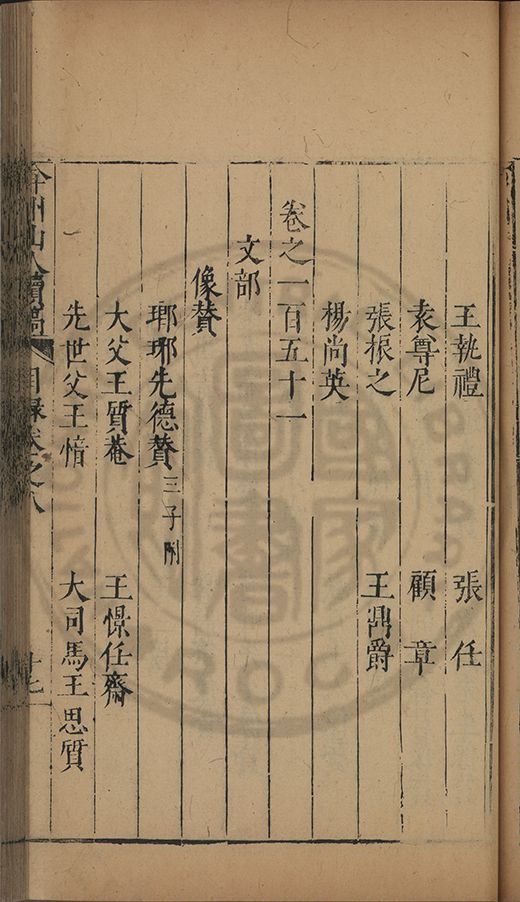 王執禮 張任
袁尊尼 顧章
張振之 王鼎爵
楊尚英
卷之一百五十一
文部
像贊
瑯琊先德贊三子附
大父王質菴 王憬任齋
先世父王愔 大司馬王思質
弇州山人續稿 目錄卷之八